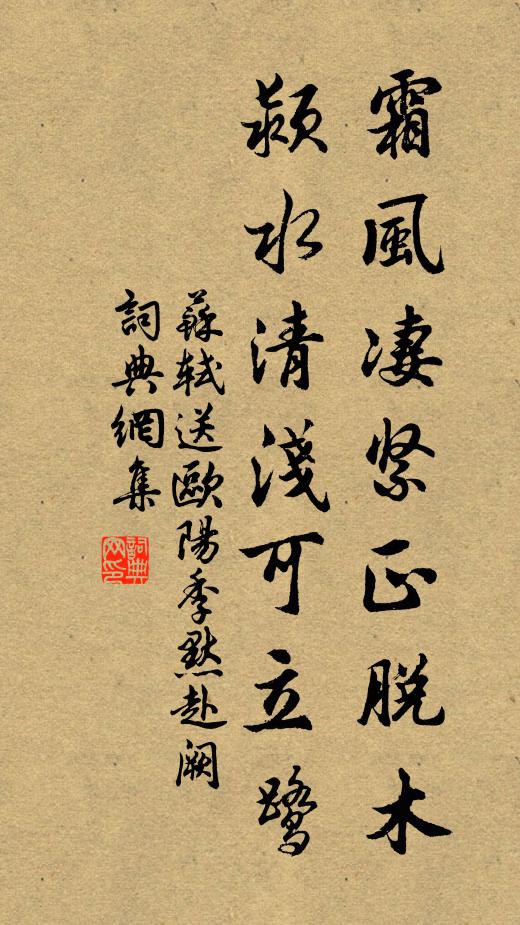 霜風凄緊正脱木
潁水清淺可立鷺
蘇軾送歐陽季默赴闕
詞典網集
詞典网印